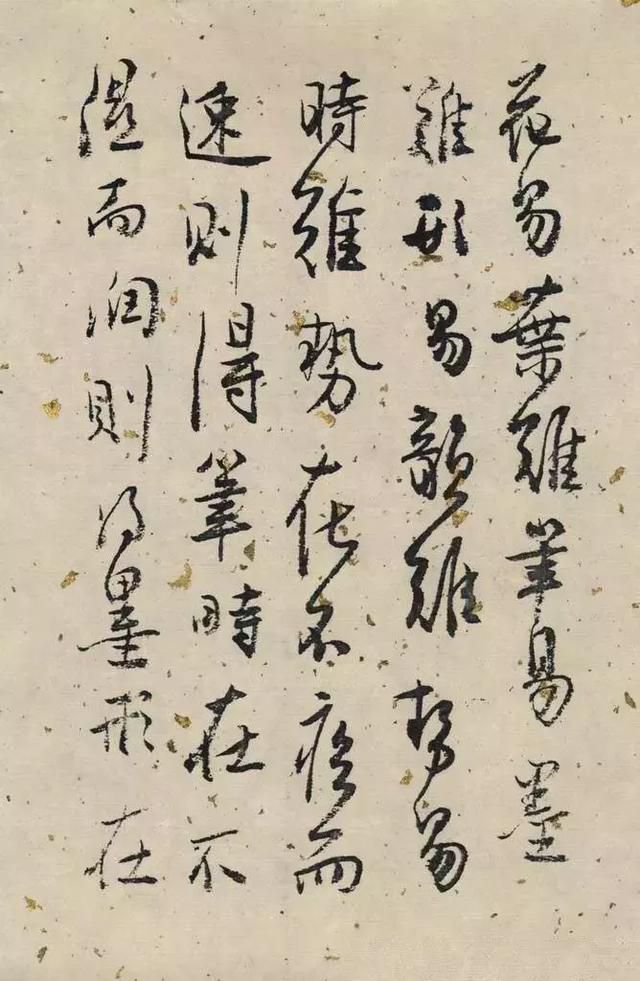 花易葉難筆易墨
難形易韻難勢易
時難勢在不疾而
速則得筆時在不
湿而润則得墨形在